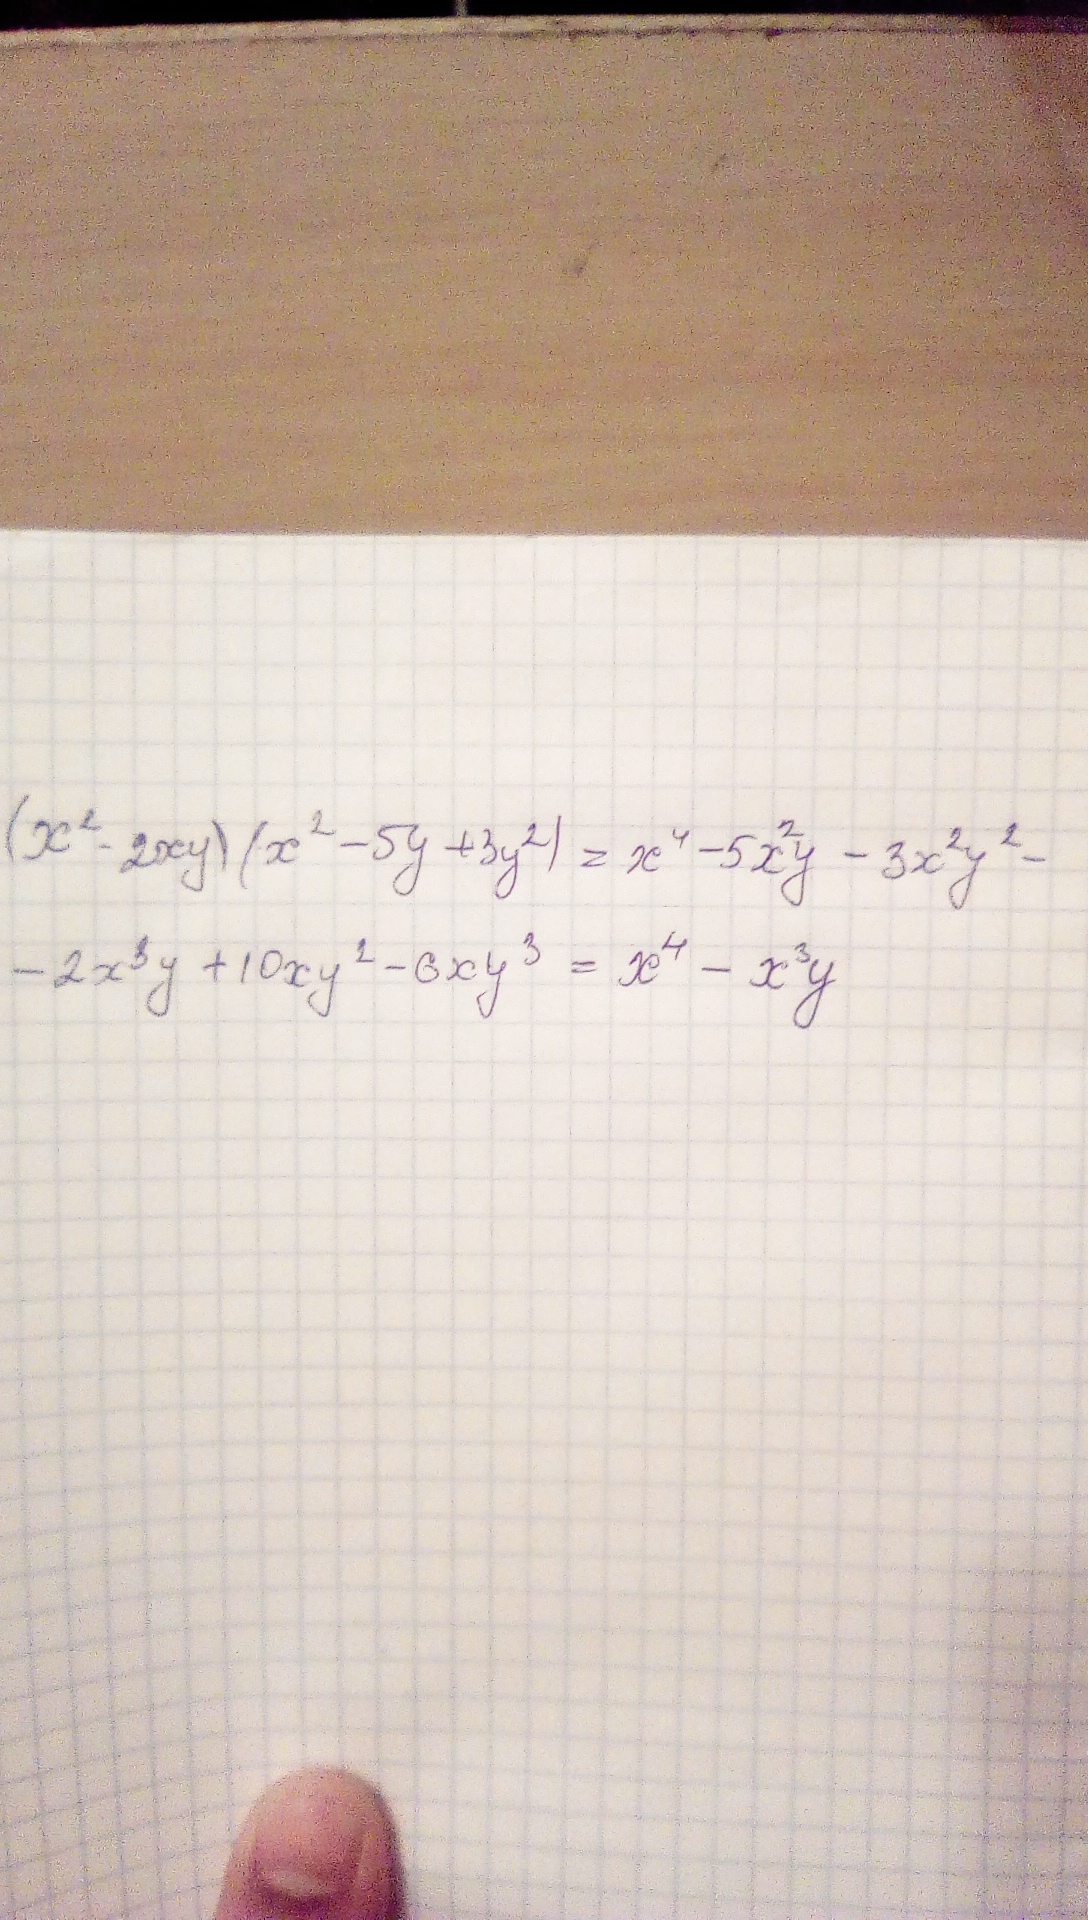 (x² - 2xy)(x² - 5y + 3y²) = x⁴ - 5x²y - 3x²y² -
- 2x³y + 10xy² - 6xy³ = x⁴ - x³y